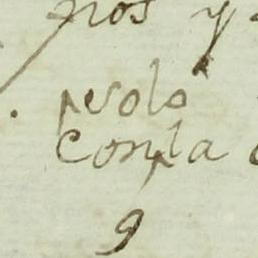 pos y
pesolo
conpla
9